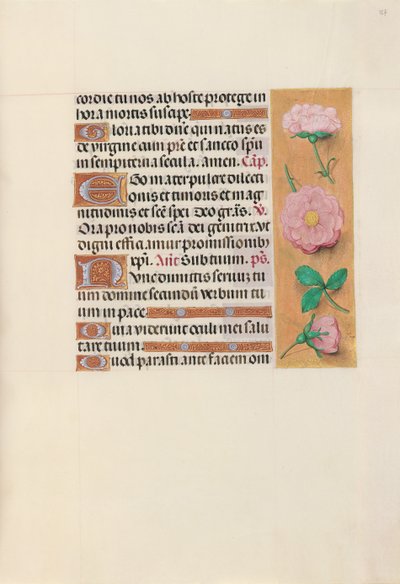 cordie tu nos ab hoste protege in
hora mortis suscipe
Gloria tibi dñe qui natus es
de virgine cum prē et sancto spū
in sempiterna secula. Amen. Cap̄.
Ego mater pulcre dilecti
onis et timoris et mag
nitudinis et scē spei Deo grās. V.
Ora pro nobis scā dei genitrix ut
digni efficiamur promissionib
xpī. Añt Sub tuum. ps.
Nunc dimittis seruū tu
um domine secundū verbum tu
um in pace
Quia viderunt oculi mei salu
tare tuum.
Quod parasti ante faciem om